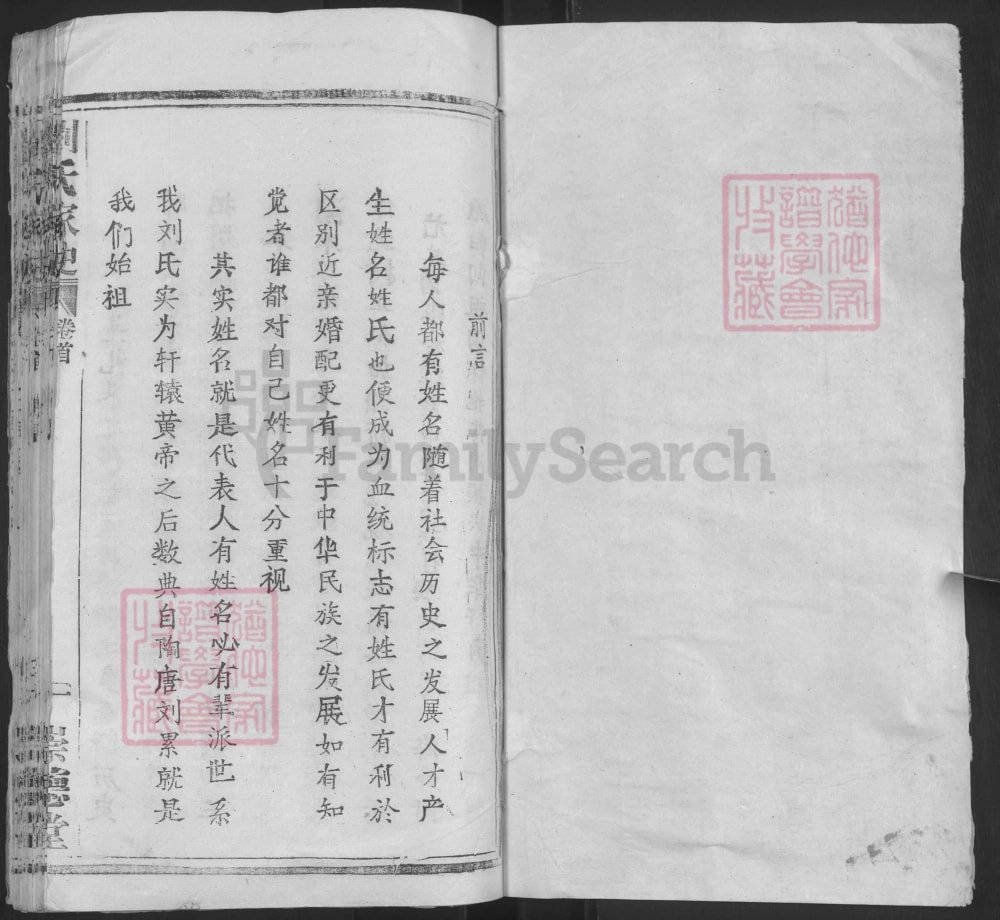 前言
每人都有姓名随着社会历史之发展人才产
生姓名姓氏也便成为血统标志有姓氏才有利於
区别近亲婚配更有利于中华民族之发展如有知
觉者谁都对自己姓名十分重视
其实姓名就是代表人有姓名必有辈派世系
我刘氏实为轩辕黄帝之后数典自陶唐刘累就是
我们始祖
氏家史
卷首
一
崇德堂
譜學會
收藏
譜學會
收藏
FamilySearch